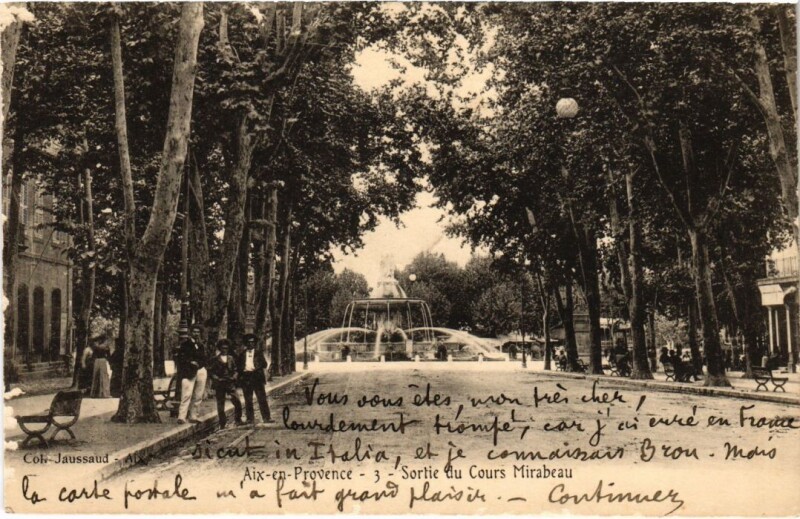 Vous vous êtes, mon très cher,
lourdement trompé, car j'ai erré en France
Col. Jaussaud - Aix
sicut in Italia, et je connaissais Brou. Mais
Aix-en-Provence - 3 - Sortie du Cours Mirabeau
la carte postale m'a fait grand plaisir. — Continuez